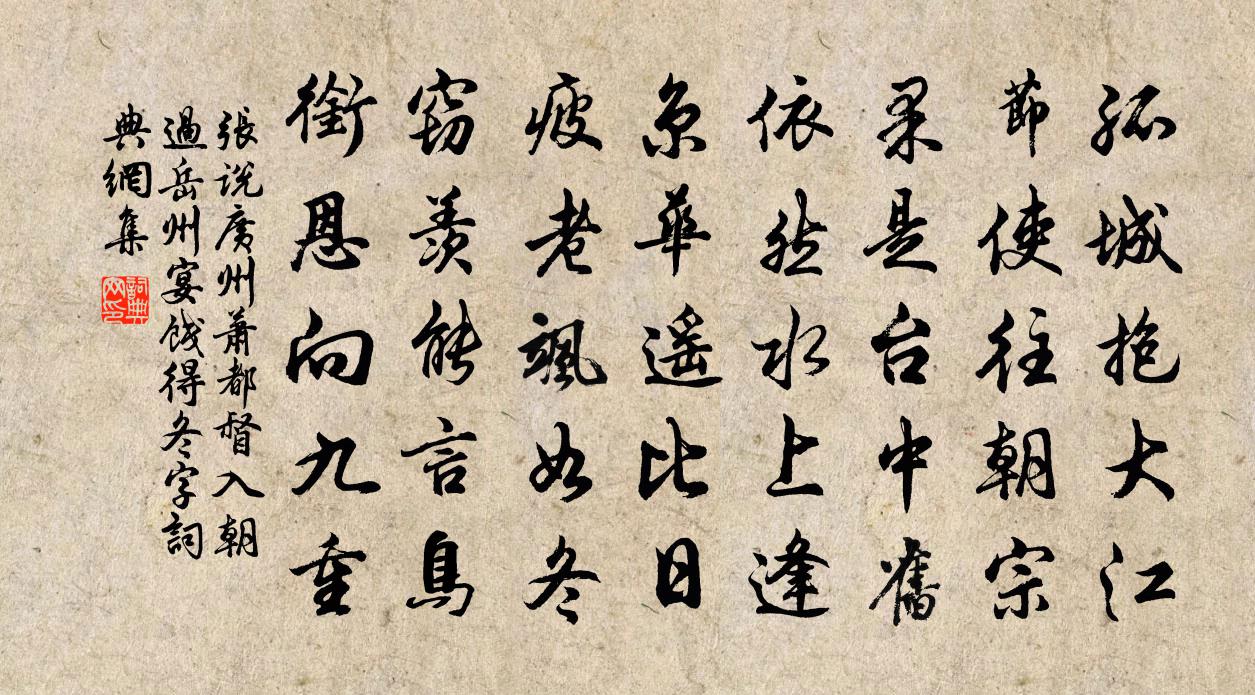 孤城抱大江
節使往朝宗
果是台中舊
依然水上逢
京華遥比日
疲老颯如冬
竊羨能言鳥
銜恩向九重
張说廣州萧都督入朝
過岳州宴餞得冬字詞
典網集
詞典
网印